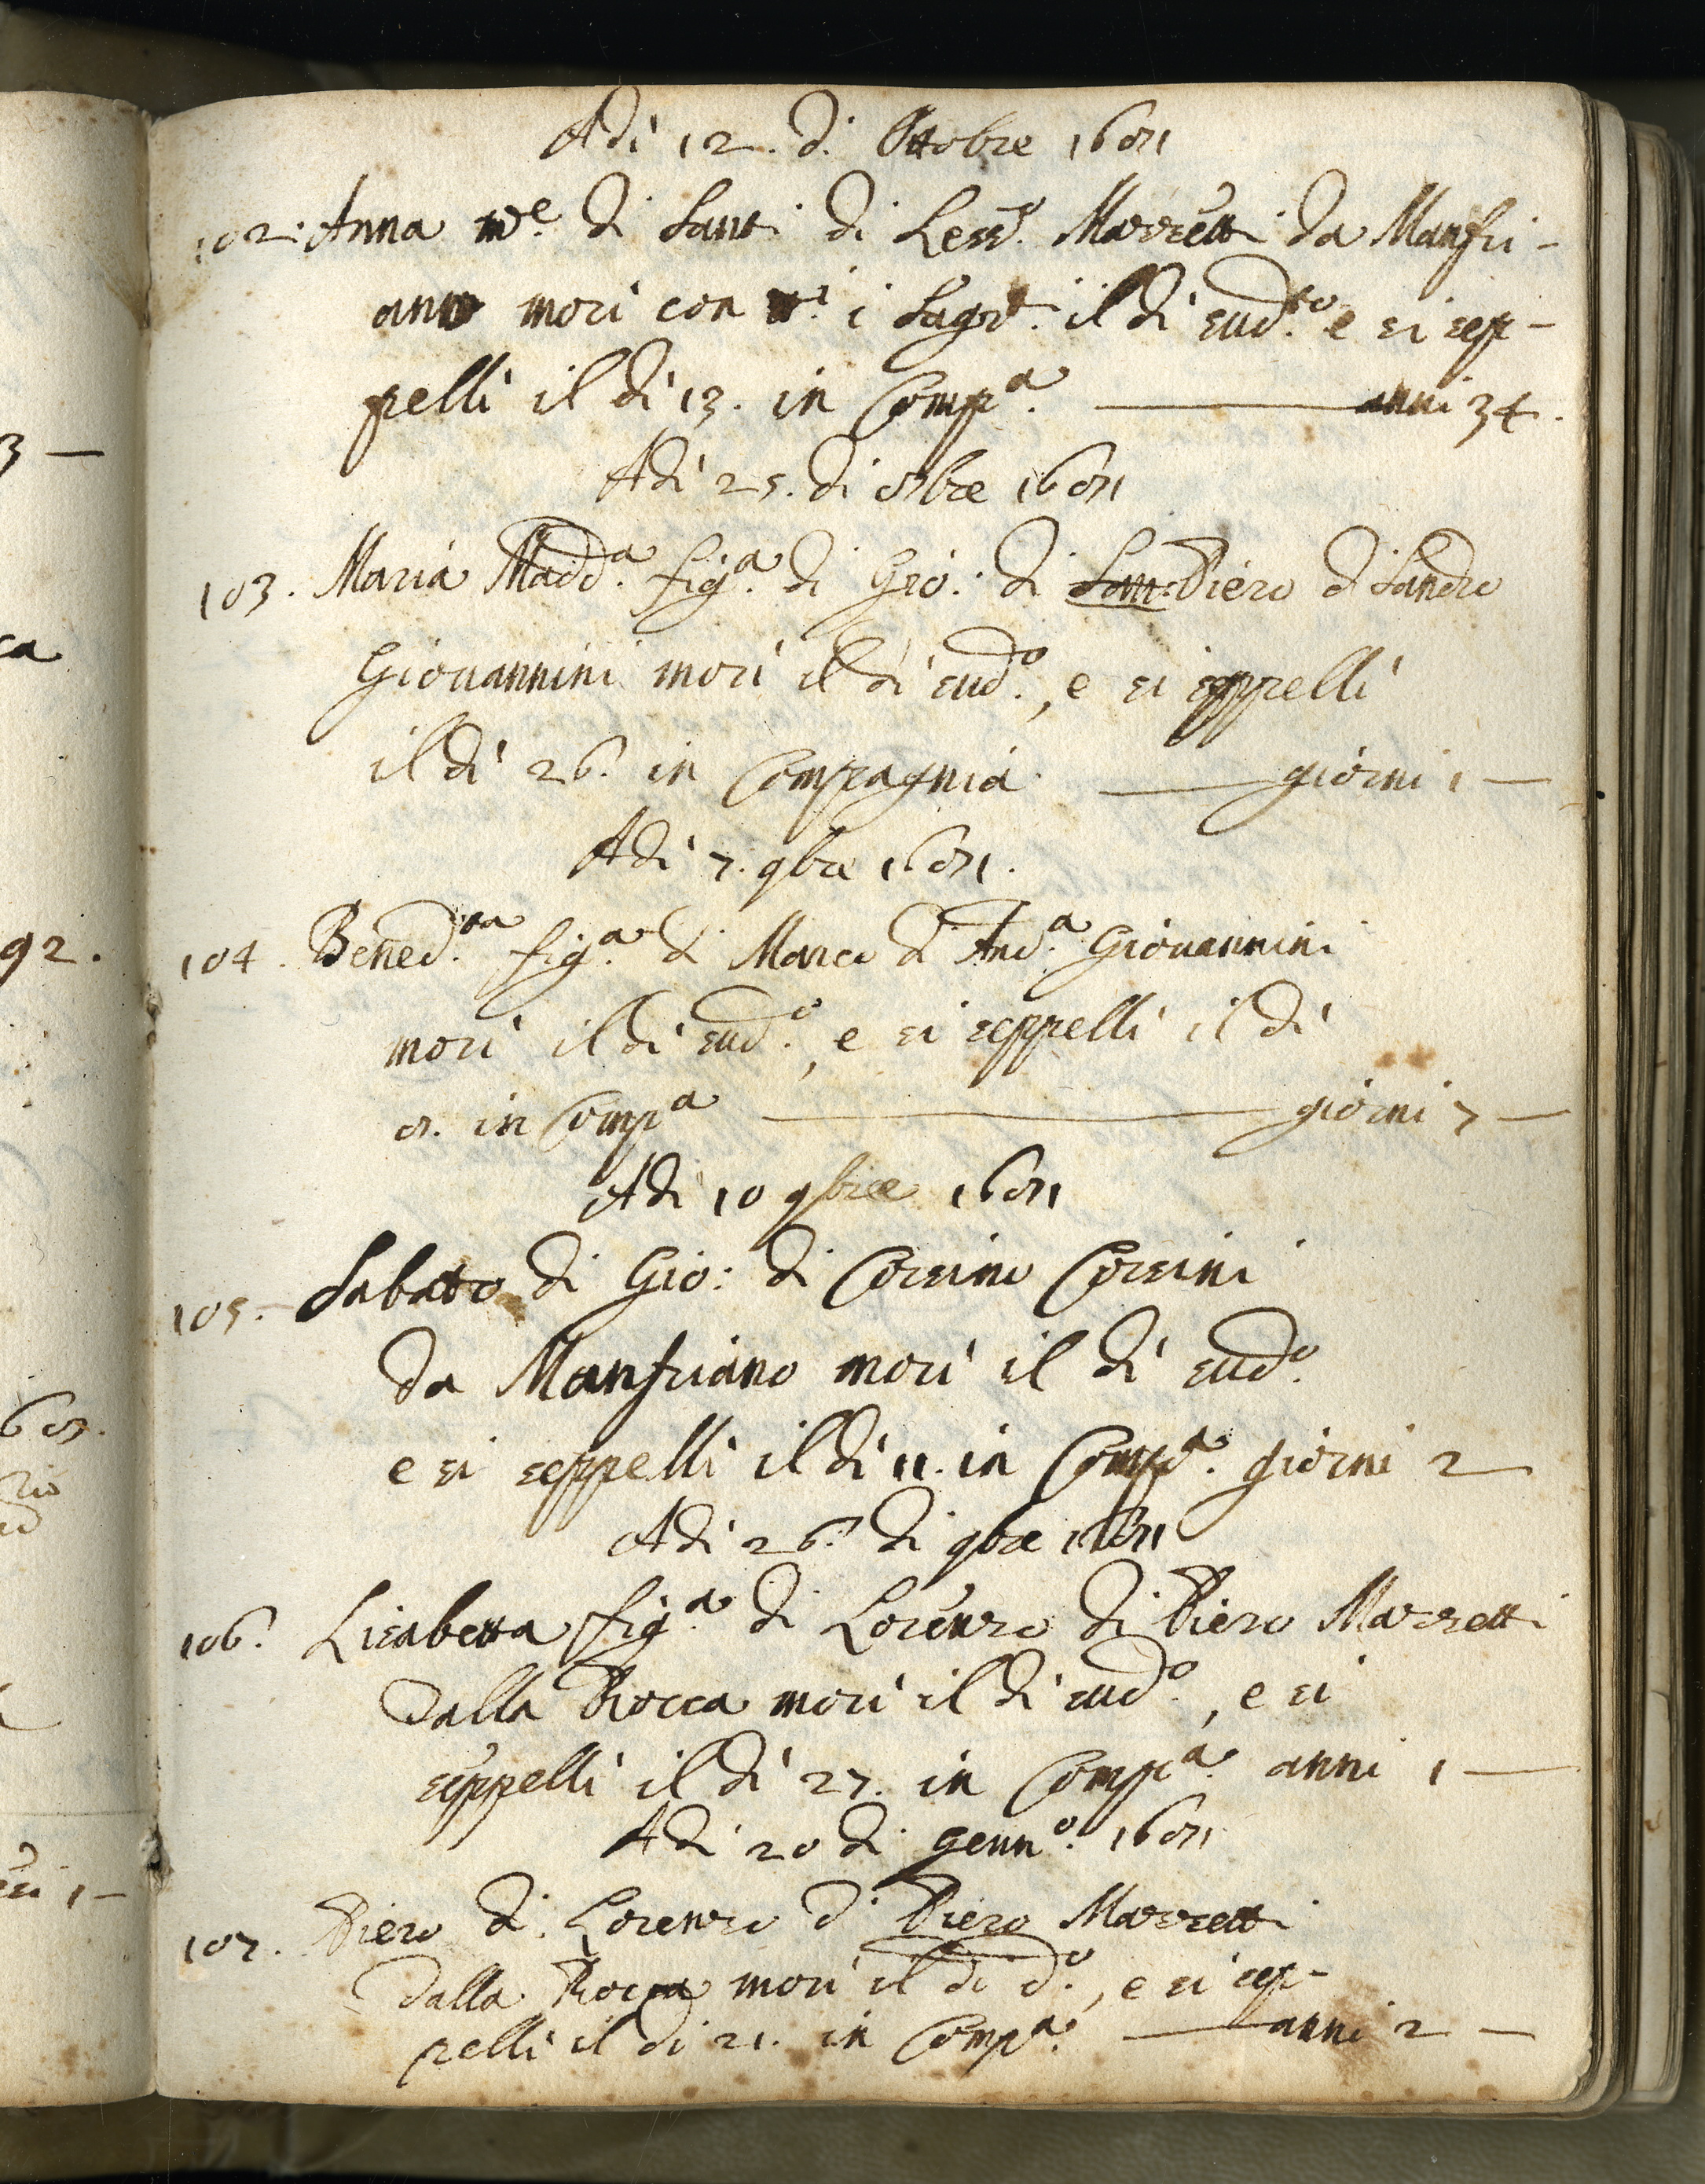 Adì 12. di Ottobre 1681
102. Anna m.e di Santi di Less.o Mazzetti da Manfri-
ano morì con t.i i Sagr.ti il dì sud.to e si sep-
pellì il dì 13. in Comp.a anni 34.
Adì 25. di 8bre 1681
103. Maria Madd.a fig.a di Gio: di San: Piero di Sandro
Giovannini morì il dì sud.o, e si seppellì
il dì 26. in Compagnia giorni 1 —
Adì 7. 9bre 1681.
104. Bened.ta fig.a di Marco di And.a Giovannini
morì il dì sud.o, e si seppellì il dì
8. in Comp.a giorni 7 —
Adì 10 9bre 1681
105. Sabatto di Gio: di Corsino Corsini
da Manfriano morì il dì sud.o
e si seppellì il dì 11. in Comp.a giorni 2
Adì 26. di 9bre 1681
106. Lisabetta fig.a di Lorenzo di Piero Mazzetti
dalla Rocca morì il dì sud.o, e si
seppellì il dì 27. in Comp.a anni 1 —
Adì 20 di Genn.o 1681
107. Piero di Lorenzo di Piero Mazzetti
dalla Rocca morì il dì d.o, e si sep-
pellì il dì 21. in Comp.a anni 2 —